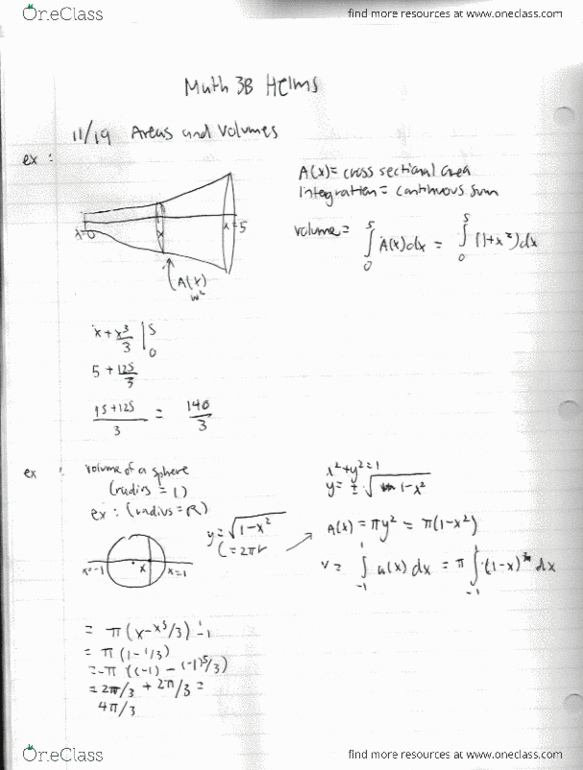 OneClass
find more resources at www.oneclass.com
Math 3B Helms
11/19 Areas and Volumes
ex :
A(x) = cross sectional area
integration = continuous sum
x=0
x
x=5
A(x)
volume = ∫₀⁵ A(x)dx = ∫₀⁵ (1+x²)dx
x + x³/3 |₀⁵
5 + 125/3
15+125/3 = 140/3
ex :
volume of a sphere
(radius = 1)
ex : (radius = R)
x²+y²=1
y= ± √ 1-x²
y = √1-x²
C=2πr
A(x) = πy² = π(1-x²)
x=-1
x
x=1
v= ∫₋₁¹ a(x) dx = π ∫₋₁¹ (1-x)² dx
= π(x-x³/3) ¦-1
= π(1-1/3)
=-π ((-1) - (-1)³/3)
= 2π/3 + 2π/3 =
4π/3
OneClass
find more resources at www.oneclass.com